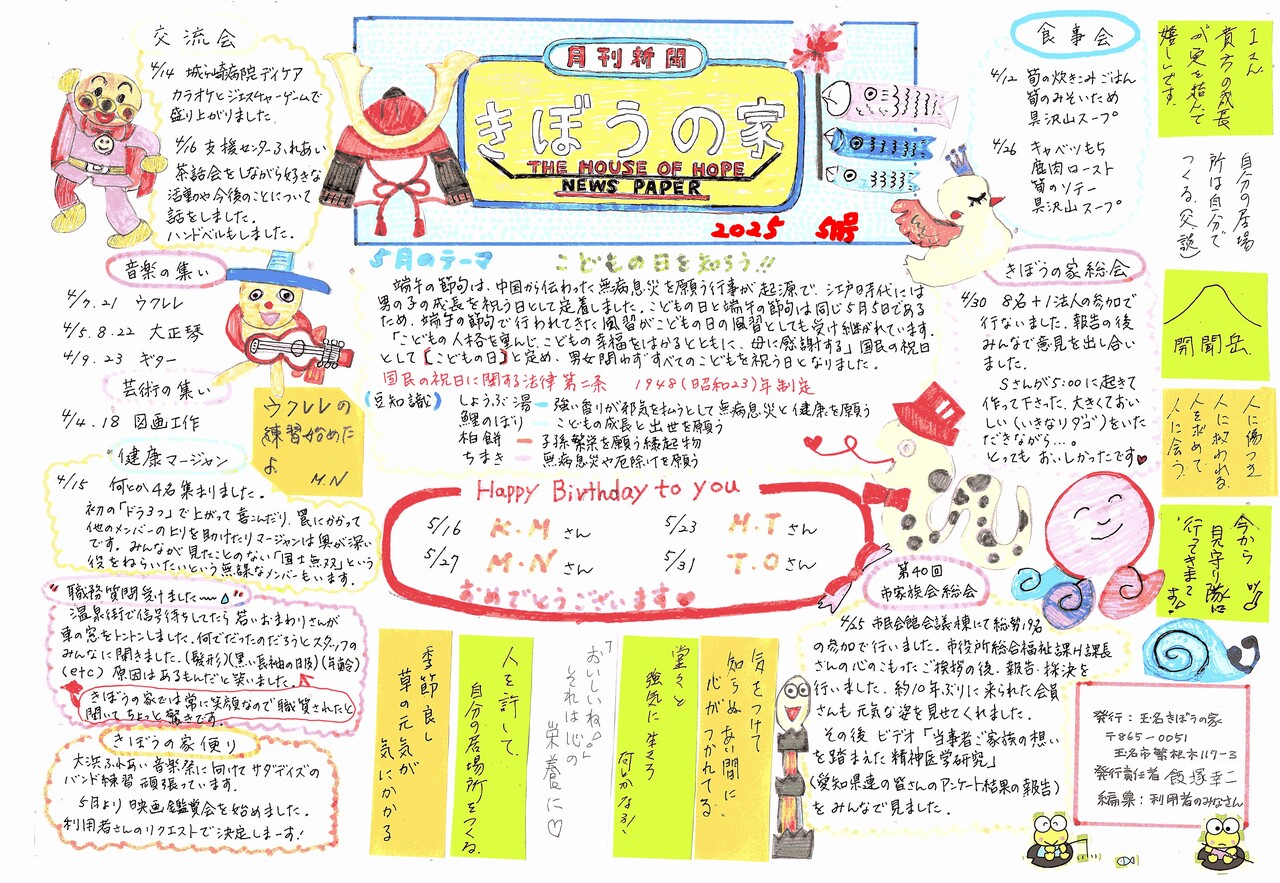 月刊新聞
きぼうの家
THE HOUSE OF HOPE
NEWS PAPER
2025 5月号
交流会
4/14 城ヶ崎病院デイケア
カラオケとジェスチャーゲームで
盛り上がりました。
4/16 支援センターふれあい
茶話会をしながら好きな
活動や今後のことについて
話をしました。
ハンドベルもしました。
音楽の集い
4/7.21 ウクレレ
4/5.8.22 大正琴
4/9.23 ギター
芸術の集い
4/4.18 図画工作
ウクレレの
練習始めた
よ
M.N
健康マージャン
4/15 何とか4名集まりました。
初の「ドラ3つ」で上がって喜こんだり、罠にかかって
他のメンバーの上りを助けたりマージャンは奥が深い
です。みんなが見たことのない「国士無双」という
役をねらいたいという無謀なメンバーもいます。
"職務質問受けました〜"
温泉街で信号待ちしてたら若いおまわりさんが
車の窓をトントンしました。何でだったのだろうとスタッフの
みんなに聞きました。(髪形)(黒い長袖の日傘)(年齢)
(etc) 原因はあるもんだと笑いました。
きぼうの家では常に笑顔なので職質されたと
聞いてちょっと驚きです。
きぼうの家便り
大浜ふれあい音楽祭に向けてサタデイズの
バンド練習頑張っています。
5月より映画鑑賞会を始めました。
利用者さんのリクエストで決定しまーす!
5月のテーマ こどもの日を知ろう!!
端午の節句は、中国から伝わった無病息災を願う行事が起源で、江戸時代には
男の子の成長を祝う日として定着しました。こどもの日と端午の節句は同じ5月5日である
ため、端午の節句で行われてきた風習がこどもの日の風習としても受け継がれています。
「こどもの人格を重んじ、こどもの幸福をはかるとともに、母に感謝する」国民の祝日
として【こどもの日】と定め、男女問わずすべてのこどもを祝う日となりました。
国民の祝日に関する法律第二条 1948(昭和23)年制定
(豆知識) しょうぶ湯ー強い香りが邪気を払うとして無病息災と健康を願う
鯉のぼりーこどもの成長と出世を願う
柏餅ー子孫繁栄を願う縁起物
ちまきー無病息災や厄除けを願う
Happy Birthday to you
5/16 K.Mさん 5/23 H.Tさん
5/27 M.Nさん 5/31 T.Oさん
おめでとうございます♥
食事会
4/12 筍の炊きこみごはん
筍のみそいため
具沢山スープ
4/26 キャベツもち
鹿肉ロースト
筍のソテー
具沢山スープ
きぼうの家総会
4/30 8名+1法人の参加で
行ないました。報告の後
みんなで意見を出し合い
ました。
Sさんが5:00に起きて
作って下さった、大きくておい
しい(いきなりダゴ)をいた
だきながら…。
とってもおいしかったです♥
第40回
市家族会総会
4/25 市民会館会議棟にて総勢19名
の参加で行いました。市役所総合福祉課H課長
さんの心のこもったご挨拶の後、報告・採決を
行いました。約10年ぶりに来られた会員
さんも元気な姿を見せてくれました。
その後ビデオ「当事者ご家族の想い
を踏まえた精神医学研究」
(愛知県連の皆さんのアンケート結果の報告)
をみんなで見ました。
Iさん
貴方の成長
が実を結んで
嬉しいです。
自分の居場
所は自分で
つくる。(交説)
開聞岳
人に傷つき
人に救われる
人を求めて
人に会う
今から
見守り隊に
行ってきまーす!
気をつけて
知らぬあい間に
心がつかれてる
堂々と
強気に生きろ
何とかなる!
「おいしいね」
それは心の
栄養に♡
人を許して、
自分の居場所をつくる。
季節良し
草の元気が
気にかかる
発行:玉名きぼうの家
〒865-0051
玉名市繁根木117-3
発行責任者 飯塚幸二
編集:利用者のみなさん